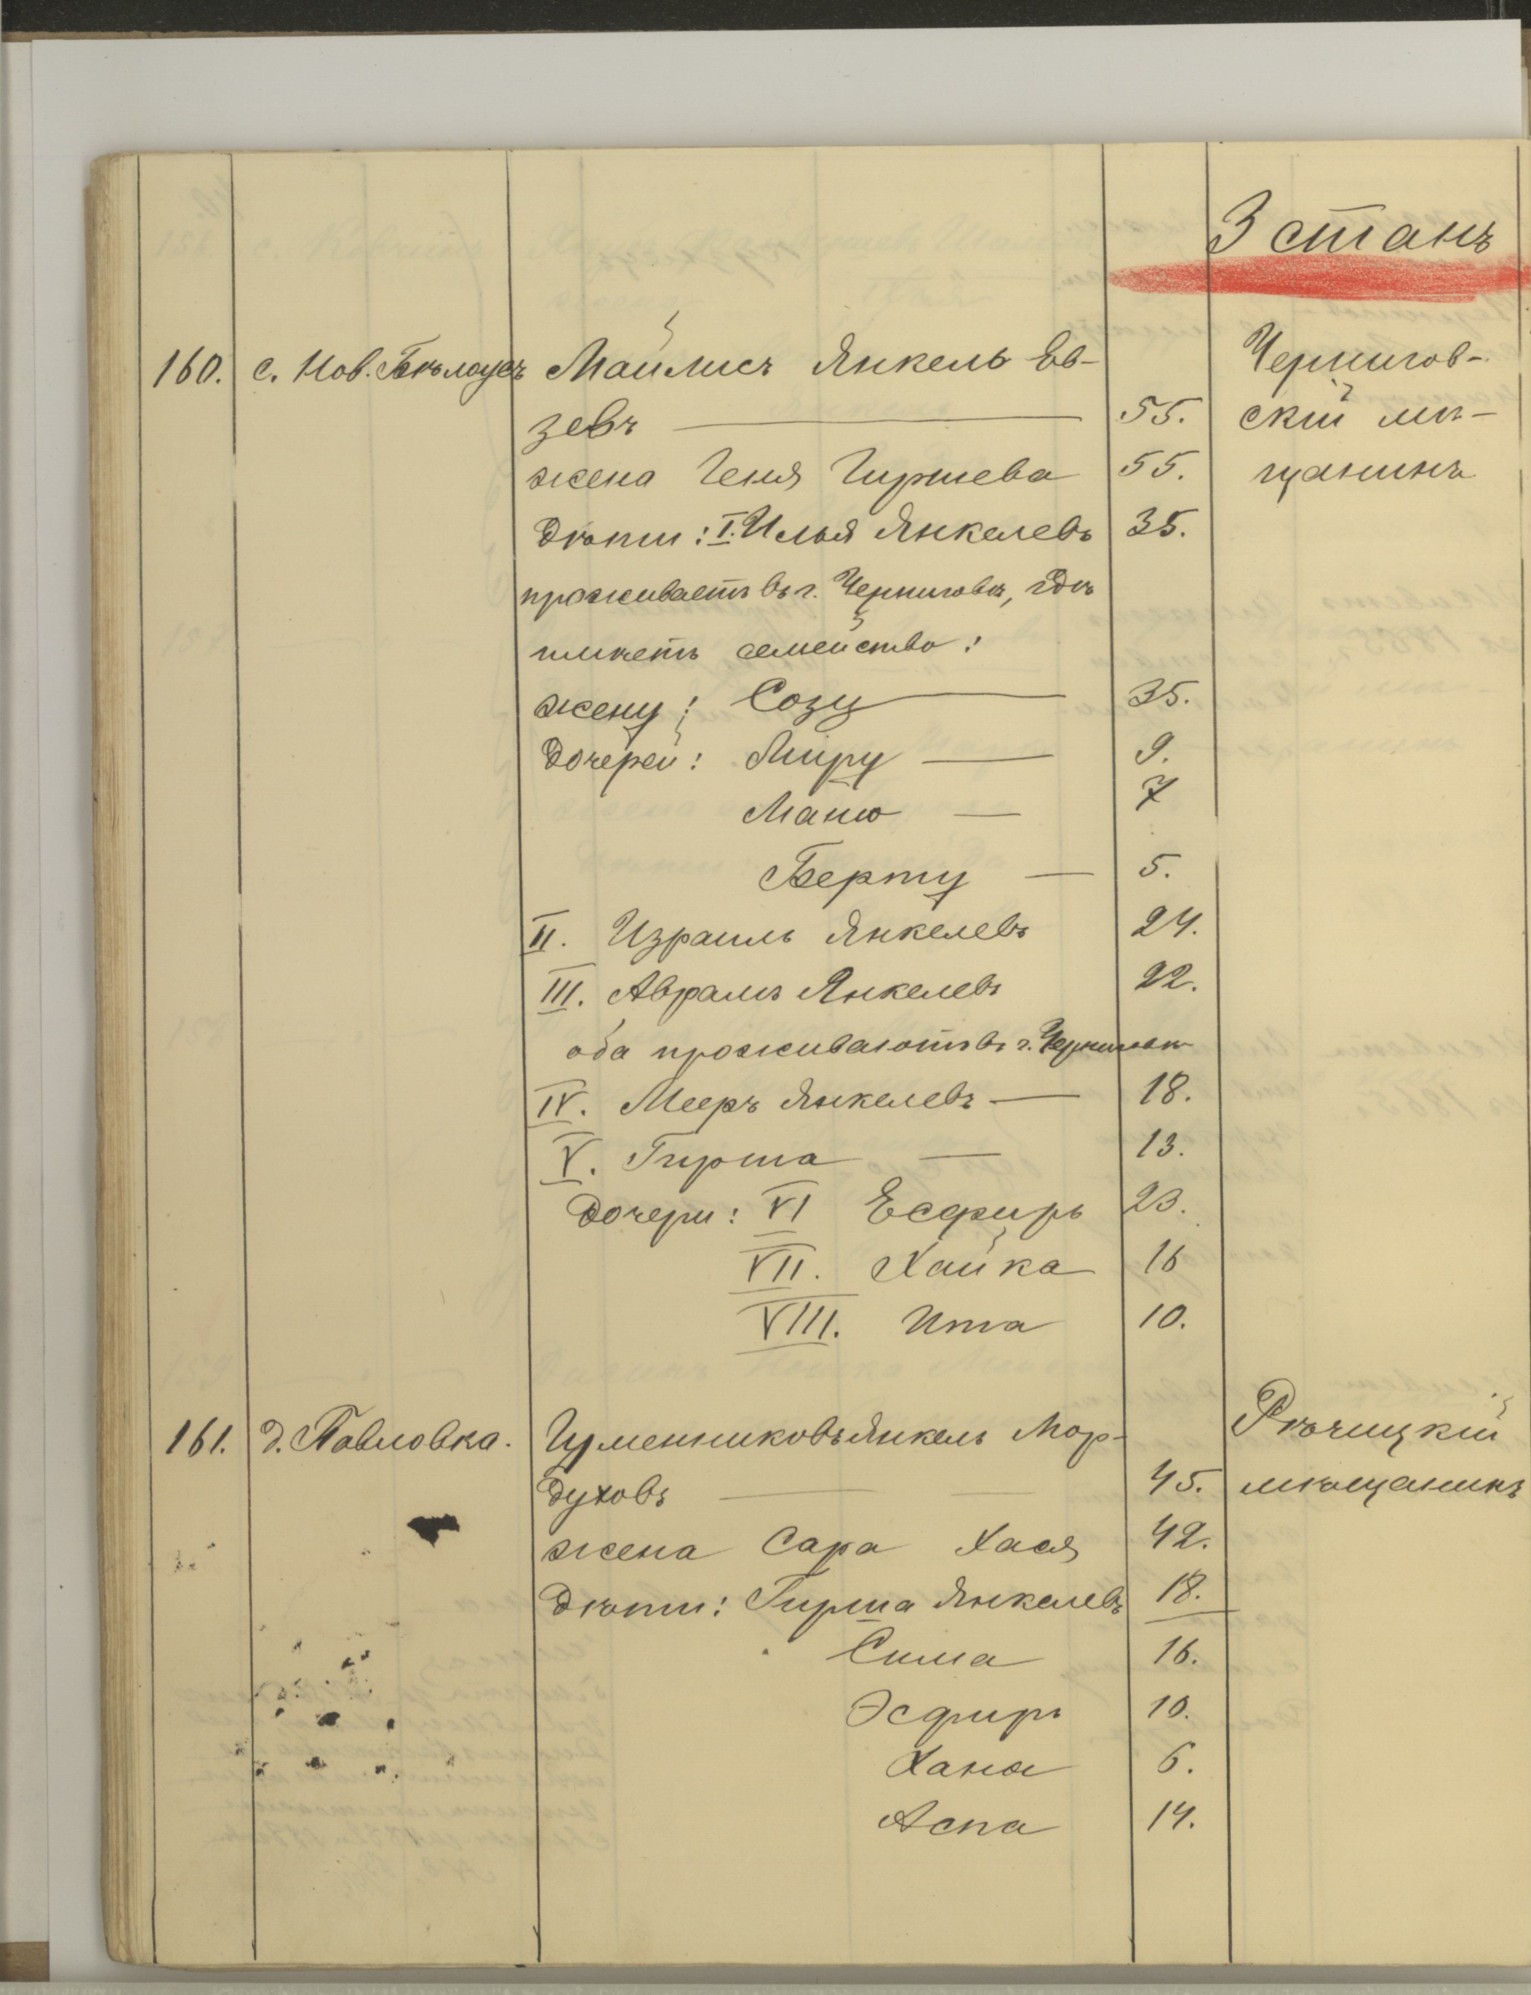 3 станъ
160. с. Нов. Бѣлоусъ Майлисъ Янкель Ев- Чернигов-
зевъ — 55. скій мѣ-
жена Геня Гиршева 55. щанинъ
Дѣти: I. Илья Янкелевъ 35.
проживаетъ въ г. Черниговѣ, гдѣ
имѣетъ семейство:
жену: Созу — 35.
Дочерей: Миру — 9.
Маню — 7
Берту — 5.
II. Израиль Янкелевъ 24.
III. Аврамъ Янкелевъ 22.
оба проживаютъ въ г. Черниговѣ
IV. Мееръ Янкелевъ — 18.
V. Гирша — 13.
Дочери: VI Есфирь 23.
VII. Хайка 16
VIII. Ита 10.
161. д. Павловка. Гуменниковъ Янкель Мор- Рѣчицкій
духовъ — — 45. мѣщанинъ
жена Сара Хася 42.
Дѣти: Гирша Янкелевъ 18.
Сима 16.
Эсфирь 10.
Хана 6.
Аспа 14.